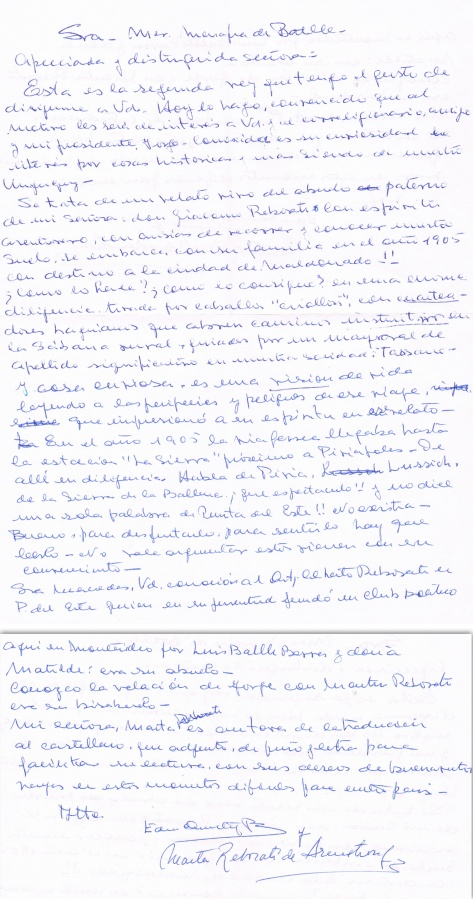 Sra. Mer. Menafra de Batlle.
Apreciada y distinguida señora:
Esta es la segunda vez que tengo el gusto de
dirigirme a Vd. Hoy lo hago, convencido que el
motivo les será de interés a Vd. y al correligionario, amigo
y mi presidente, Jorge. Conocida es su curiosidad e
interés por cosas históricas y más siendo de nuestro
Uruguay—
Se trata de un relato vivo del abuelo paterno
de mi Señora: don Giacomo Reborati. Con espíritu
aventurero, con ansias de recorrer y conocer nuestro
suelo, se embarca con su familia en el año 1905
con destino a la ciudad de Maldonado!!
¿Cómo lo hace?, ¿como lo consigue? en una enorme
diligencia tirada por caballos "criollos", con cuartea-
dores baquianos que abren caminos en
la rural, guiados por un mayoral de
apellido significativo en nuestra sociedad:
Y cosa curiosa, es una vision de vida
leyendo a las peripecias y peligros de ese viaje,
que impresionó a mi espíritu en relato—
En el año 1905 la vía ferrea llegaba hasta
la estación "La Sierra" próximo a Piriápolis— De
allí en diligencia. Habla de Piria, Lussich,
de la Sierra de la Ballena, ¡que espectáculo!! y no dice
una sola palabra de Punta del Este!! No existía—
Bueno, para disfrutarlo, para sentirlo hay que
leerlo— No vale argumentar estos vienen con su
Sra Mercedes, Vd. conoció al Arq. Alberto Reborati en
P. del Este quien en su juventud fundó un club político
Aquí en Montevideo por Luis Batlle Berres y doña
Matilde: era su abuelo—
Conozco la relación de Jorge con Martín Reborati
era su bisabuelo—
Mi señora, Marta Reborati es autora de la traducción
al castellano, que adjunto, de puño y letra para
facilitar su lectura, con sus deseos de buenaventura
en estos momentos difíciles para nuestro país—
Atte.
y
Marta Reborati de Armstrong